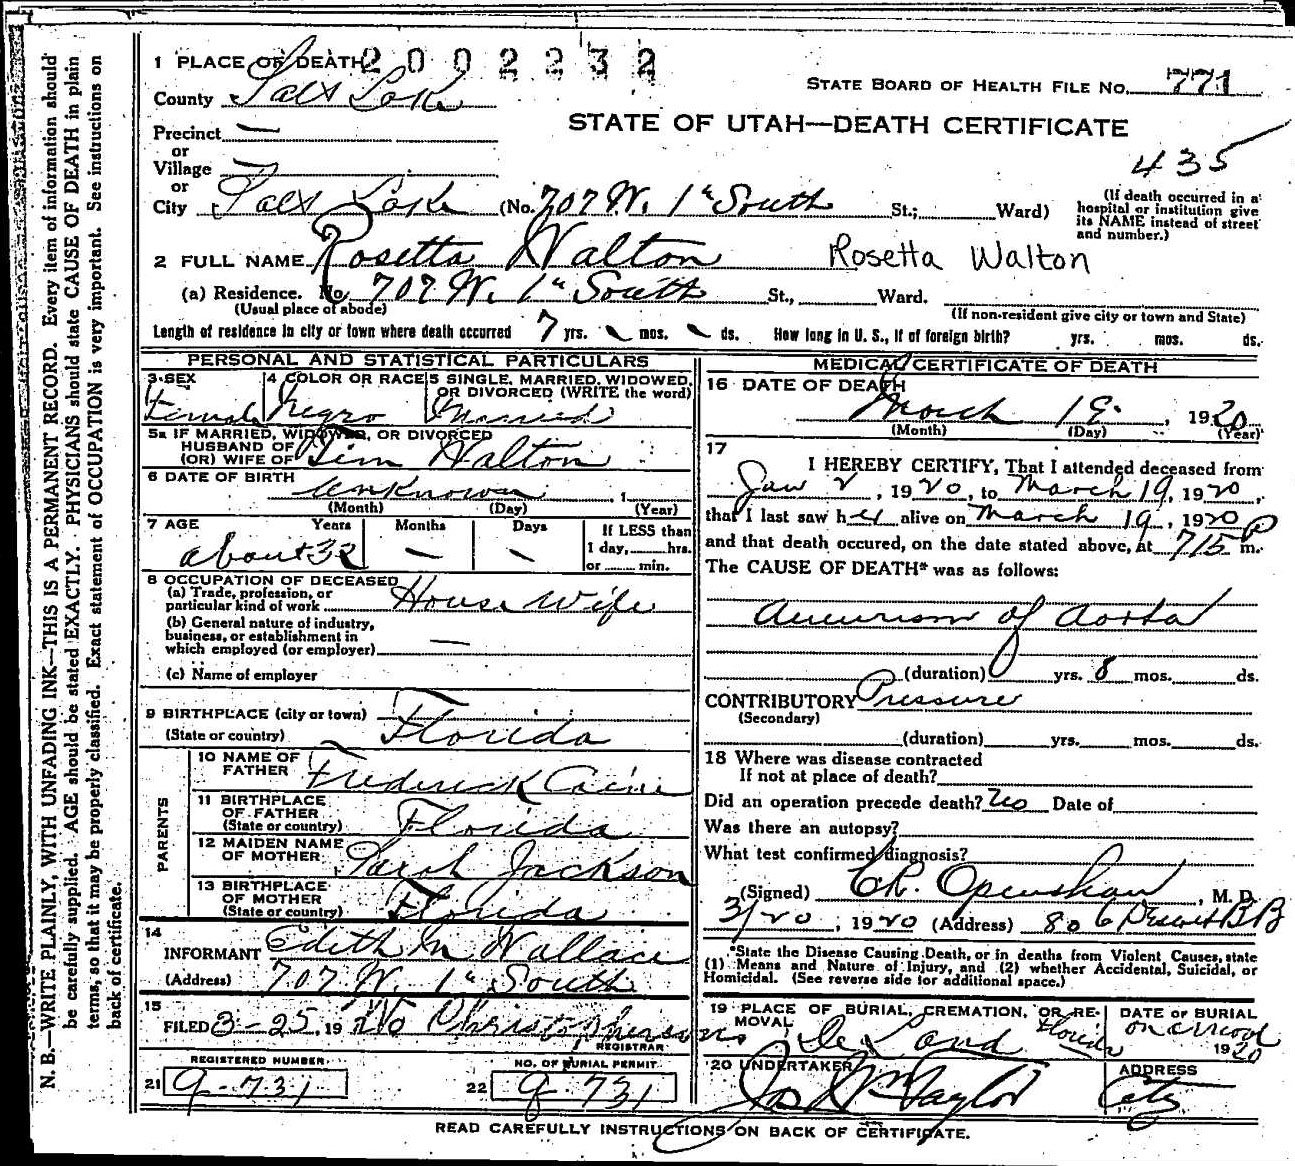 1 PLACE OF DEATH 2002232
STATE BOARD OF HEALTH FILE No. 771
County Salt Lake
STATE OF UTAH—DEATH CERTIFICATE
Precinct —
435
or
Village —
or
City Salt Lake (No. 707 W. 1st South St.; Ward)
(If death occurred in a hospital or institution give its NAME instead of street and number.)
2 FULL NAME Rosetta Walton Rosetta Walton
(a) Residence. No. 707 W. 1st South St., Ward.
(Usual place of abode) (If non-resident give city or town and State)
Length of residence in city or town where death occurred 7 yrs. mos. ds. How long in U. S., if of foreign birth? yrs. mos. ds.
PERSONAL AND STATISTICAL PARTICULARS
3 SEX Female
4 COLOR OR RACE Negro
5 SINGLE, MARRIED, WIDOWED, OR DIVORCED (WRITE the word) Married
5a IF MARRIED, WIDOWED, OR DIVORCED
HUSBAND OF
(OR) WIFE OF Jim Walton
6 DATE OF BIRTH Unknown , 1
(Month) (Day) (Year)
7 AGE Years Months Days If LESS than
about 32 — — 1 day, hrs.
or min.
8 OCCUPATION OF DECEASED
(a) Trade, profession, or
particular kind of work House Wife
(b) General nature of industry,
business, or establishment in
which employed (or employer) —
(c) Name of employer
9 BIRTHPLACE (city or town)
(State or country) Florida
PARENTS
10 NAME OF
FATHER Frederick Caine
11 BIRTHPLACE
OF FATHER
(State or country) Florida
12 MAIDEN NAME
OF MOTHER Sarah Jackson
13 BIRTHPLACE
OF MOTHER
(State or country) Florida
14
INFORMANT Edith M Wallace
(Address) 707 W. 1st South
15
FILED 3-25, 19
REGISTRAR
REGISTERED NUMBER
21 9-731
NO. OF BURIAL PERMIT
22 9-731
MEDICAL CERTIFICATE OF DEATH
16 DATE OF DEATH
March 19 , 1920
(Month) (Day) (Year)
17
I HEREBY CERTIFY, That I attended deceased from
Jan 2 , 1920, to March 19, 1920,
that I last saw her alive on March 19 , 1920
and that death occured, on the date stated above, at 715 P m.
The CAUSE OF DEATH* was as follows:
Aneurism of Aorta
(duration) yrs. 8 mos. ds.
CONTRIBUTORY Pressure
(Secondary)
(duration) yrs. mos. ds.
18 Where was disease contracted
If not at place of death?
Did an operation precede death? No Date of
Was there an autopsy?
What test confirmed diagnosis?
(Signed) Openshaw , M. D.
3/20 , 1920 (Address) 806 Deseret B B
*State the Disease Causing Death, or in deaths from Violent Causes, state
(1) Means and Nature of Injury, and (2) whether Accidental, Suicidal, or
Homicidal. (See reverse side for additional space.)
19 PLACE OF BURIAL, CREMATION, OR RE-
MOVAL De Land Florida
DATE OF BURIAL
on arrival
1920
20 UNDERTAKER Taylor
ADDRESS
City
READ CAREFULLY INSTRUCTIONS ON BACK OF CERTIFICATE.
N. B.—WRITE PLAINLY, WITH UNFADING INK—THIS IS A PERMANENT RECORD. Every item of information should
be carefully supplied. AGE should be stated EXACTLY. PHYSICIANS should state CAUSE OF DEATH in plain
terms, so that it may be properly classified. Exact statement of OCCUPATION is very important. See instructions on
back of certificate.